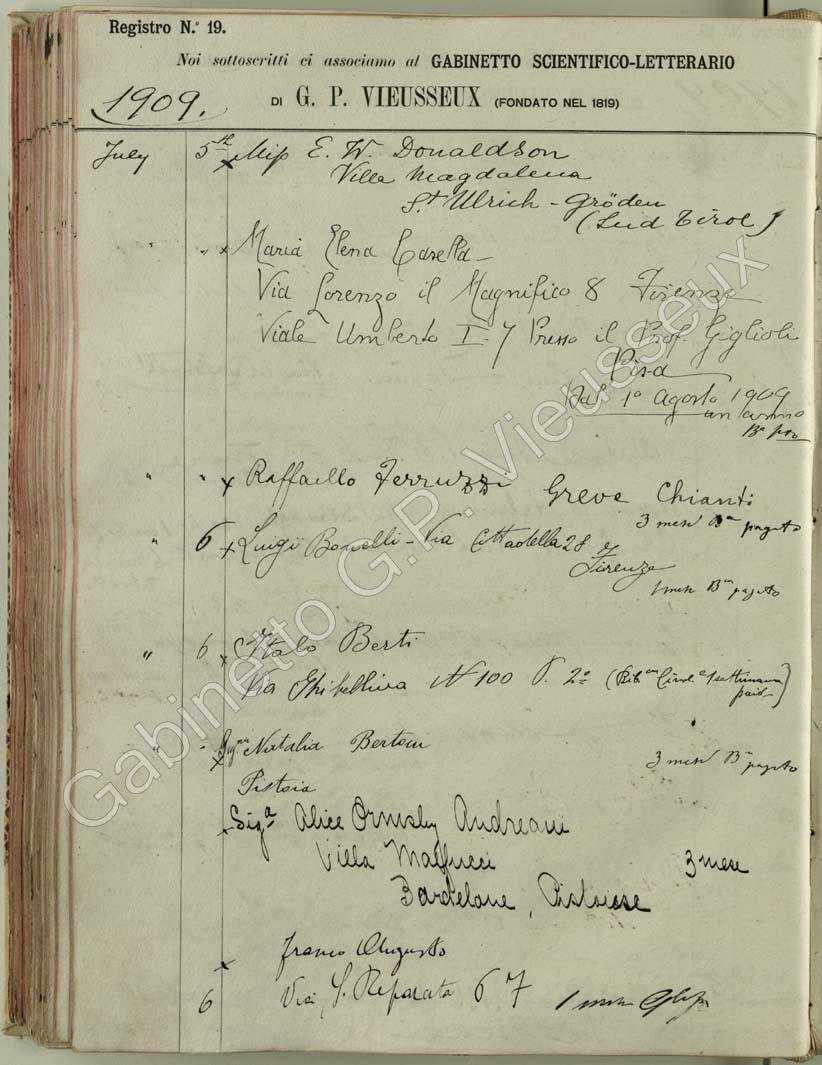 Registro N.º 19.
Noi sottoscritti ci associamo al GABINETTO SCIENTIFICO-LETTERARIO
1909.
DI G. P. VIEUSSEUX (FONDATO NEL 1819)
July 5th x Miss E. W. Donaldson
Villa Magdalena
St Ulrich - Gröden
(Süd Tirol)
" " x Maria Elena Casella
Via Lorenzo il Magnifico 8 Firenze
Viale Umberto I - 7 Presso il Prof. Giglioli
Pisa
Dal 1º Agosto 1909
un anno
" " x Raffaello Ferruzzi Greve Chianti
3 mesi Bne pagato
" 6 x Luigi Bonelli - Via Cittadella 28
Firenze
1 mese Bne pagato
" 6 x Italo Berti
Via Ghibellina N 100 P. 2º settimana
paid
" " x Natalia Bertoni
3 mesi Bne pagato
Pistoia
x Siga Alice Ormsby Andreani
Villa Malfucci 3 mese
Bardelone, Pistoiese
x Franco Augusto
6 Via S. Reparata 67 1 mese
Gabinetto G.P. Vieusseux